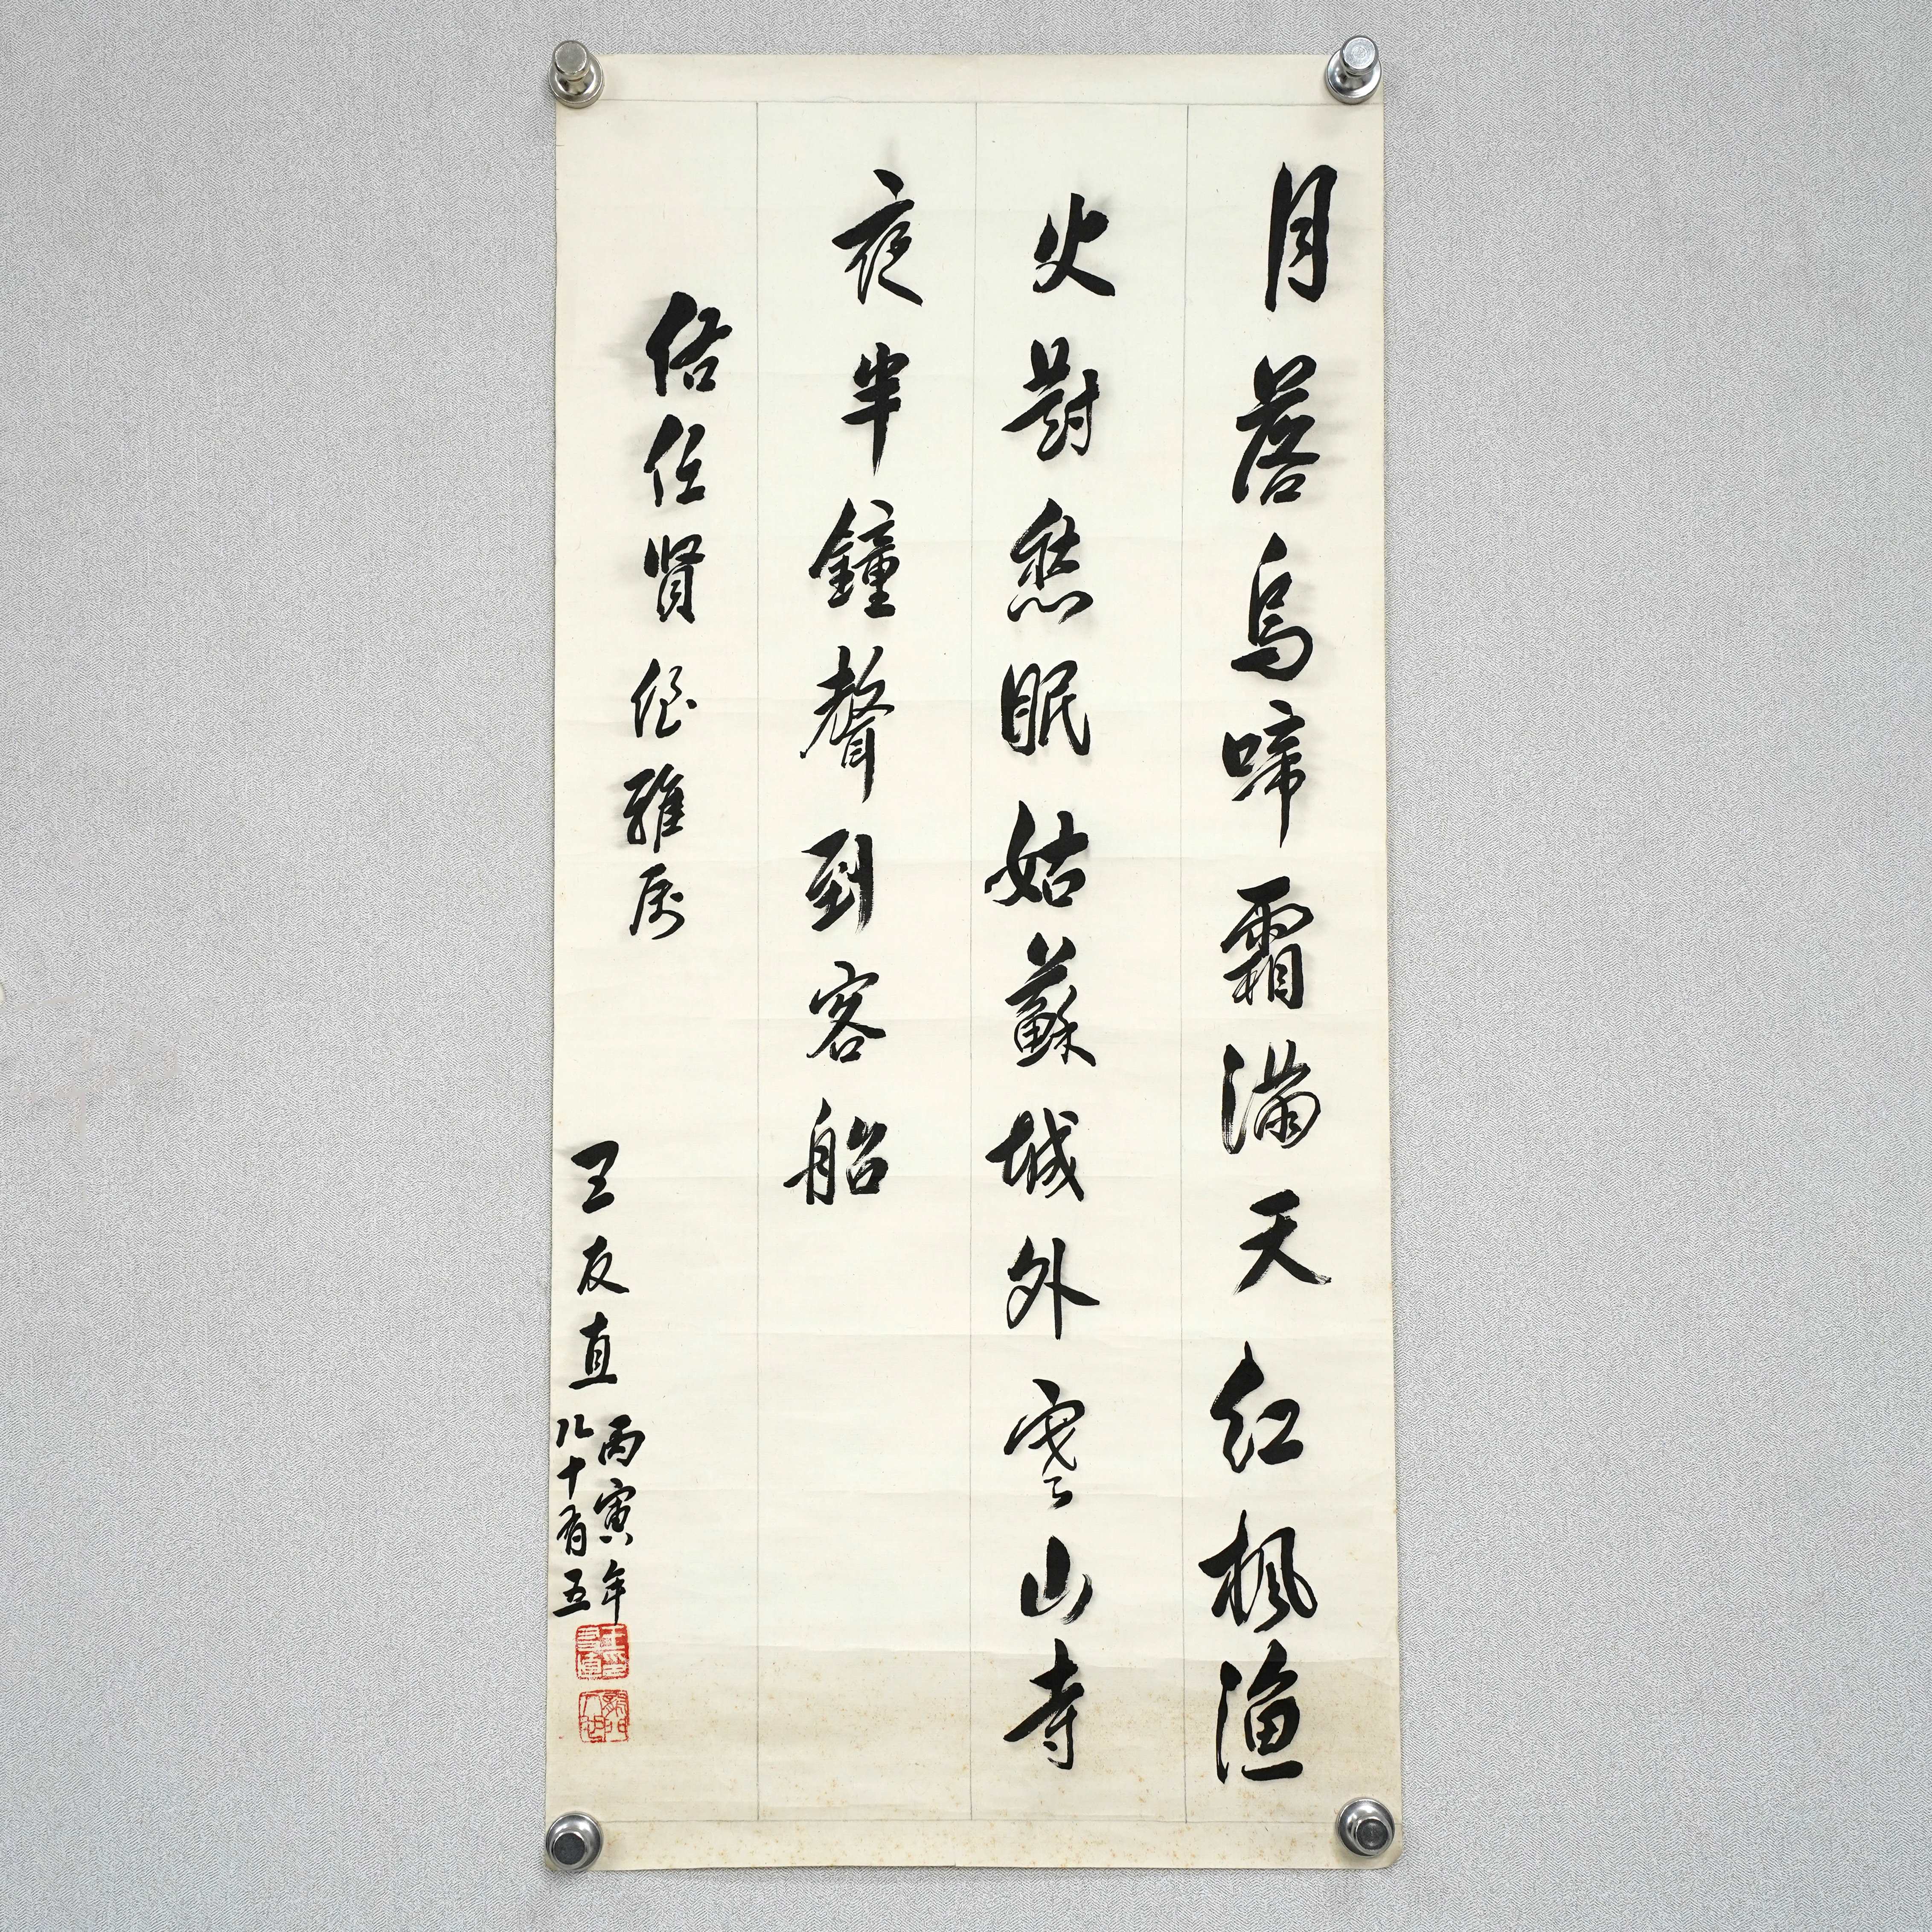 月落烏啼霜滿天红楓漁
火對愁眠姑蘇城外寒山寺
夜半鐘聲到客船
俗任贤侄雅属
王友直
丙寅年
八十有五